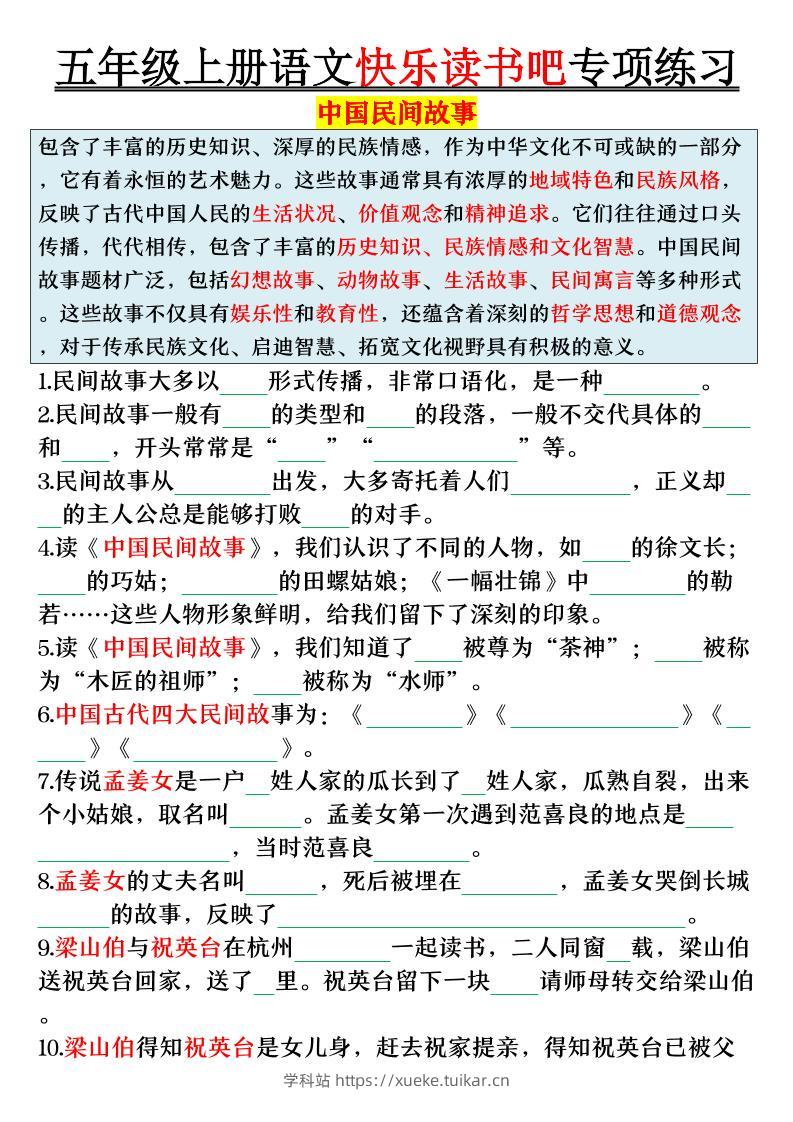 五年级上册语文快乐读书吧专项练习
中国民间故事
包含了丰富的历史知识、深厚的民族情感，作为中华文化不可或缺的一部分
，它有着永恒的艺术魅力。这些故事通常具有浓厚的地域特色和民族风格，
反映了古代中国人民的生活状况、价值观念和精神追求。它们往往通过口头
传播，代代相传，包含了丰富的历史知识、民族情感和文化智慧。中国民间
故事题材广泛，包括幻想故事、动物故事、生活故事、民间寓言等多种形式
。这些故事不仅具有娱乐性和教育性，还蕴含着深刻的哲学思想和道德观念
，对于传承民族文化、启迪智慧、拓宽文化视野具有积极的意义。
1.民间故事大多以____形式传播，非常口语化，是一种________。
2.民间故事一般有____的类型和____的段落，一般不交代具体的____
和____，开头常常是“____”“____________”等。
3.民间故事从________出发，大多寄托着人们__________，正义却__
__的主人公总是能够打败____的对手。
4.读《中国民间故事》，我们认识了不同的人物，如____的徐文长；
____的巧姑；________的田螺姑娘；《一幅壮锦》中________的勒
若……这些人物形象鲜明，给我们留下了深刻的印象。
5.读《中国民间故事》，我们知道了____被尊为“茶神”；____被称
为“木匠的祖师”；____被称为“水师”。
6.中国古代四大民间故事为：《________》《______________》《__
____》《____________》。
7.传说孟姜女是一户__姓人家的瓜长到了__姓人家，瓜熟自裂，出来
个小姑娘，取名叫______。孟姜女第一次遇到范喜良的地点是____
________________，当时范喜良________。
8.孟姜女的丈夫名叫______，死后被埋在________，孟姜女哭倒长城
______的故事，反映了__________________________________。
9.梁山伯与祝英台在杭州________一起读书，二人同窗__载，梁山伯
送祝英台回家，送了__里。祝英台留下一块____请师母转交给梁山伯
。
10.梁山伯得知祝英台是女儿身，赶去祝家提亲，得知祝英台已被父
学科站 https://xueke.tuikar.cn